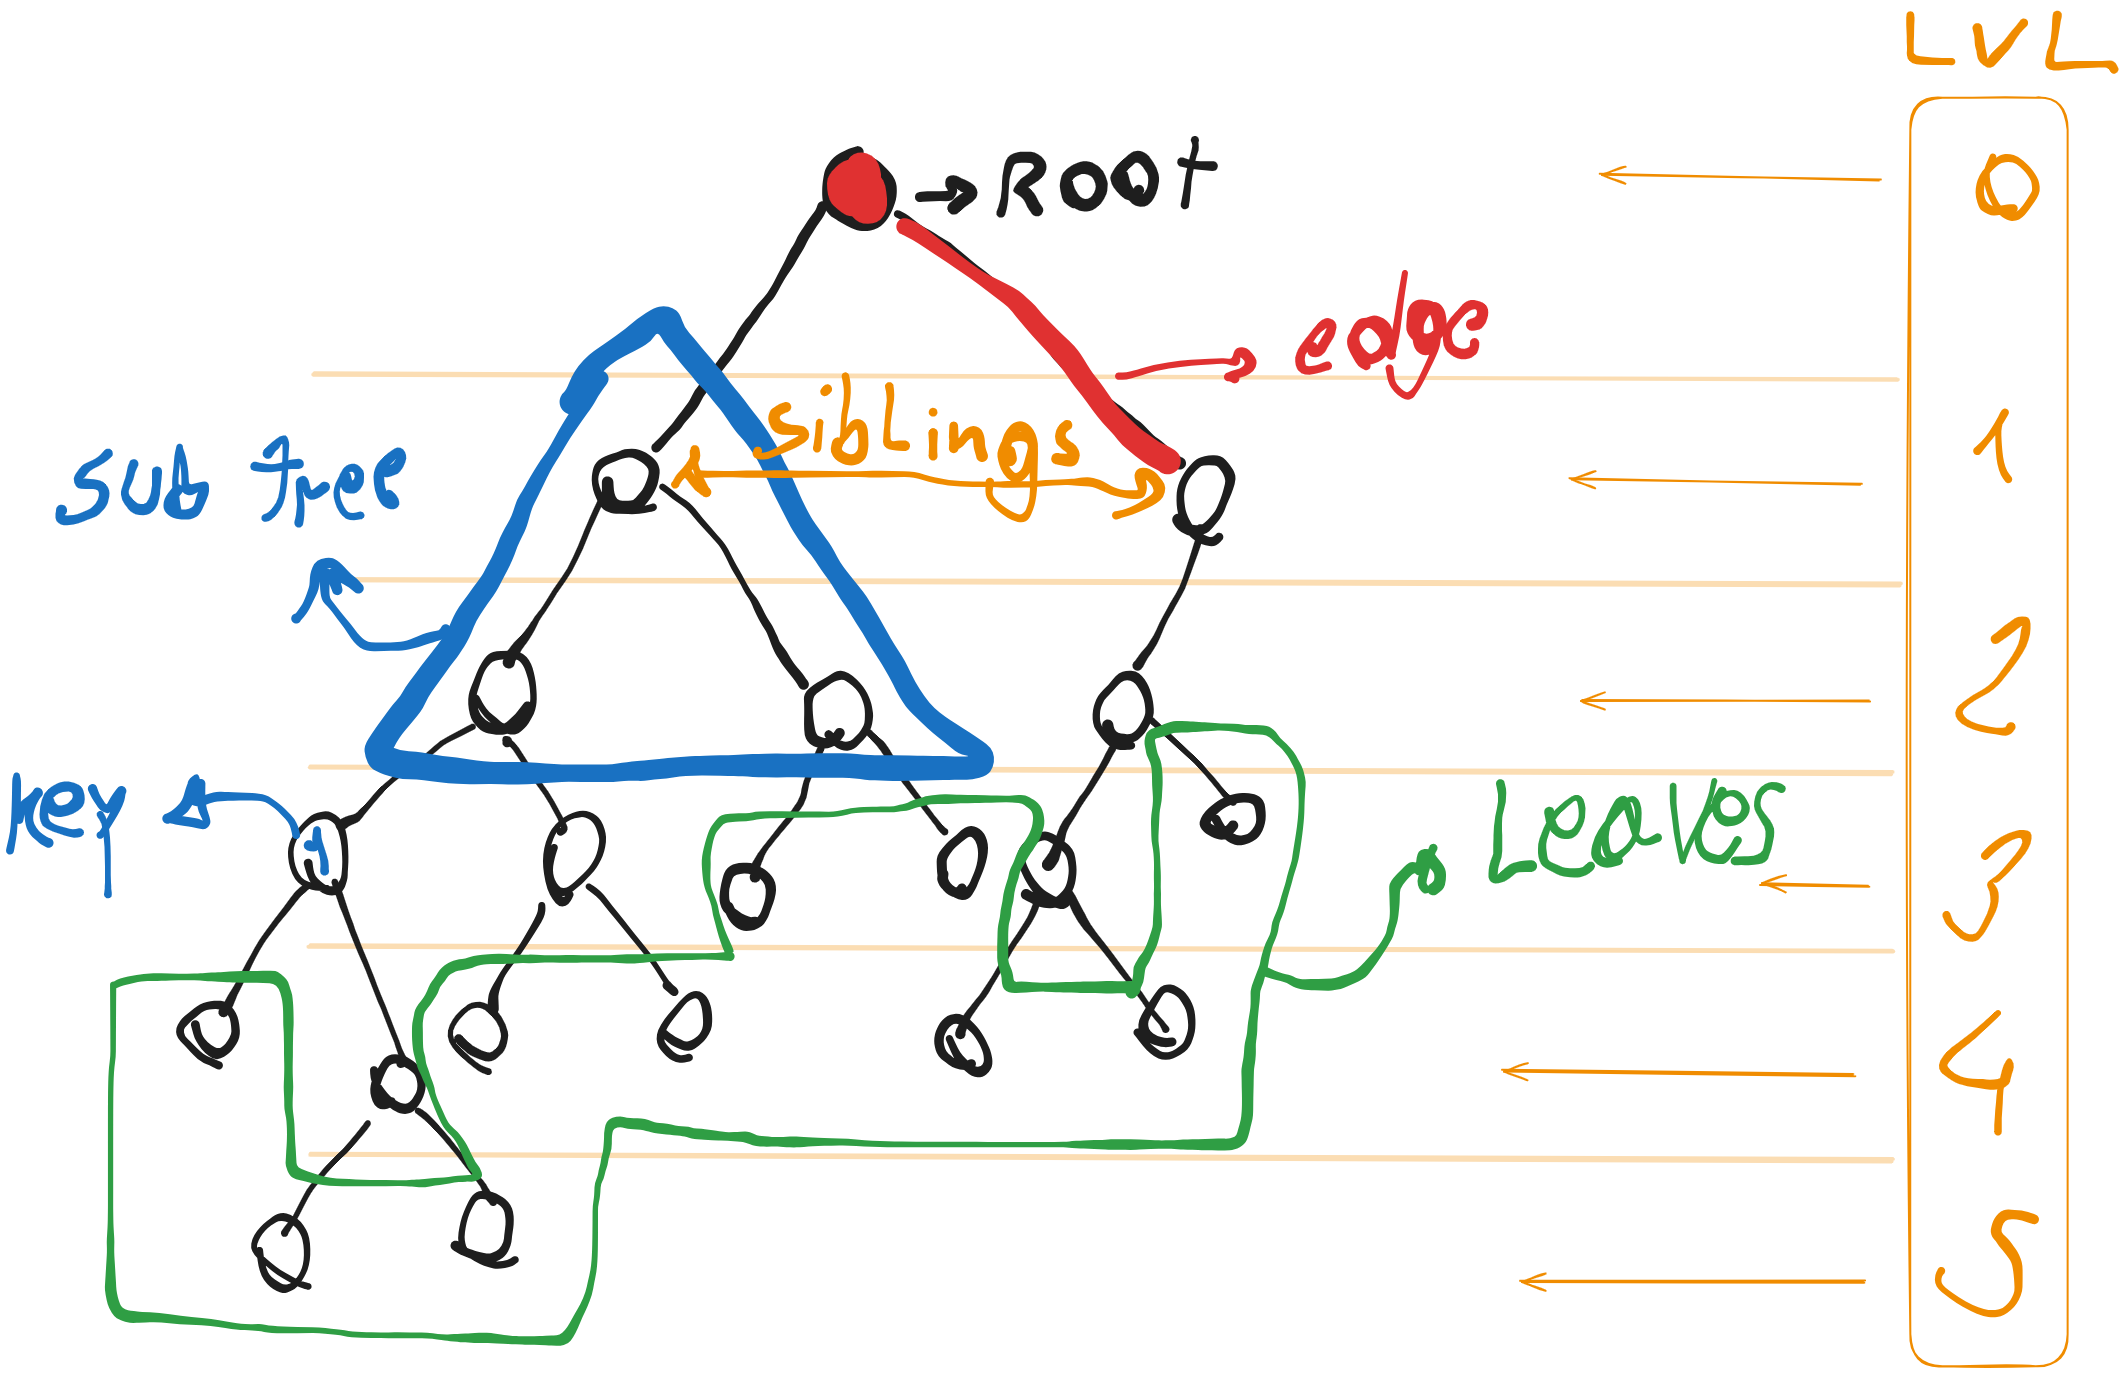 LVL
0
→ Root
edge
siblings
1
sub tree
2
key
1
Leaves
3
4
5